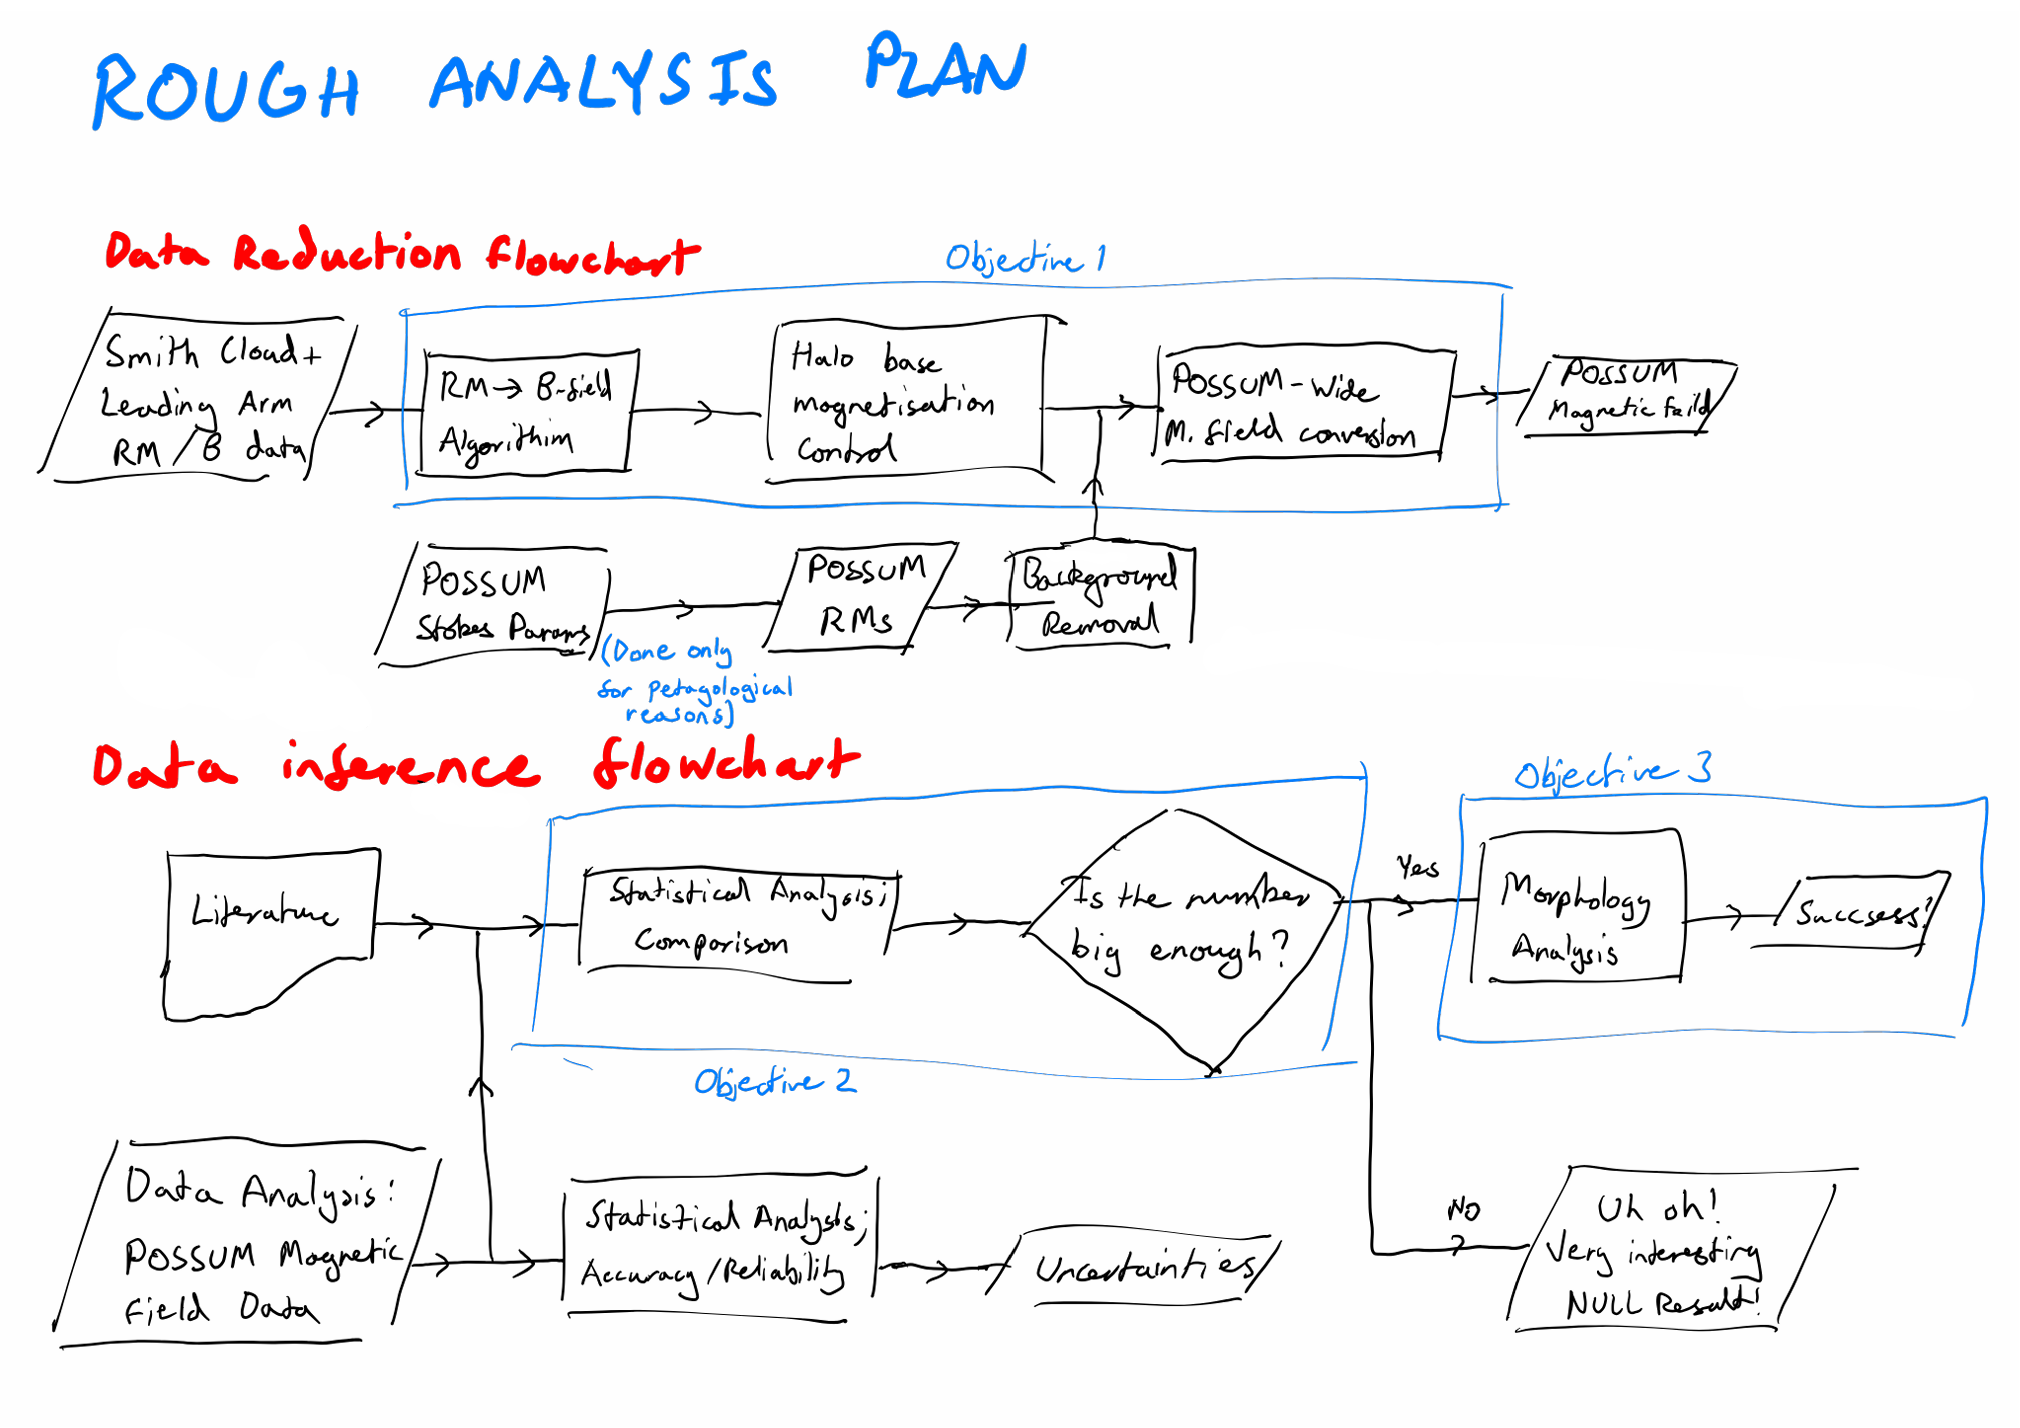 ROUGH ANALYSIS PLAN
Data Reduction flowchart
Objective 1
Smith Cloud +
Leading Arm
RM / B data
RM → B-field
Algorithim
Halo base
magnetisation
Control
POSSUM-Wide
M. field conversion
POSSUM
Magnetic Feild
POSSUM
Stokes Params
(Done only
for petagological
reasons)
POSSUM
RMs
Background
Removal
Data inference flowchart
Objective 3
Literature
Statistical Analysis;
Comparison
Is the number
big enough?
Yes
Morphology
Analysis
Succsess!
Objective 2
Data Analysis:
POSSUM Magnetic
Field Data
Statistical Analysis;
Accuracy/Reliability
Uncertainties
NO
Uh oh!
Very interesting
NULL Result!